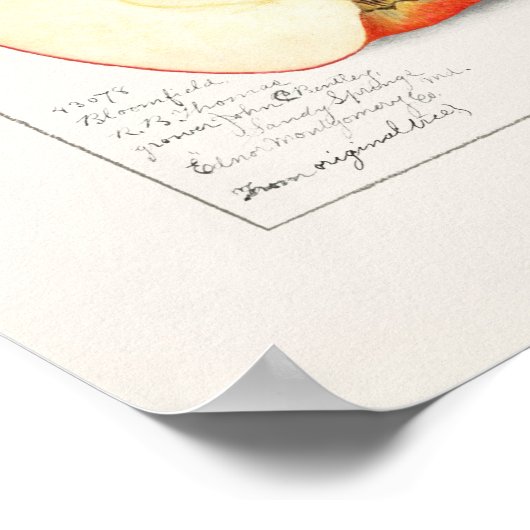 43078
Bloomfield.
R. B. Thomas
grower John C Bentley,
Sandy Springs, Md.
"Ednor Montgomery Co.
From original tree)